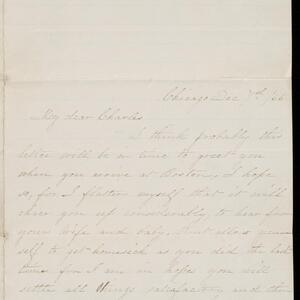 Chicago Dec 7th /66
My dear Charlie
I think probably this
letter will be in time to greet you
when you arrive at Boston, I hope
so, for I flatter myself that it will
cheer you up considerably to hear from
your wife and baby. Don't allow your-
self to get homesick as you did the last
time for I am in hopes you will
settle all things satisfactory and then